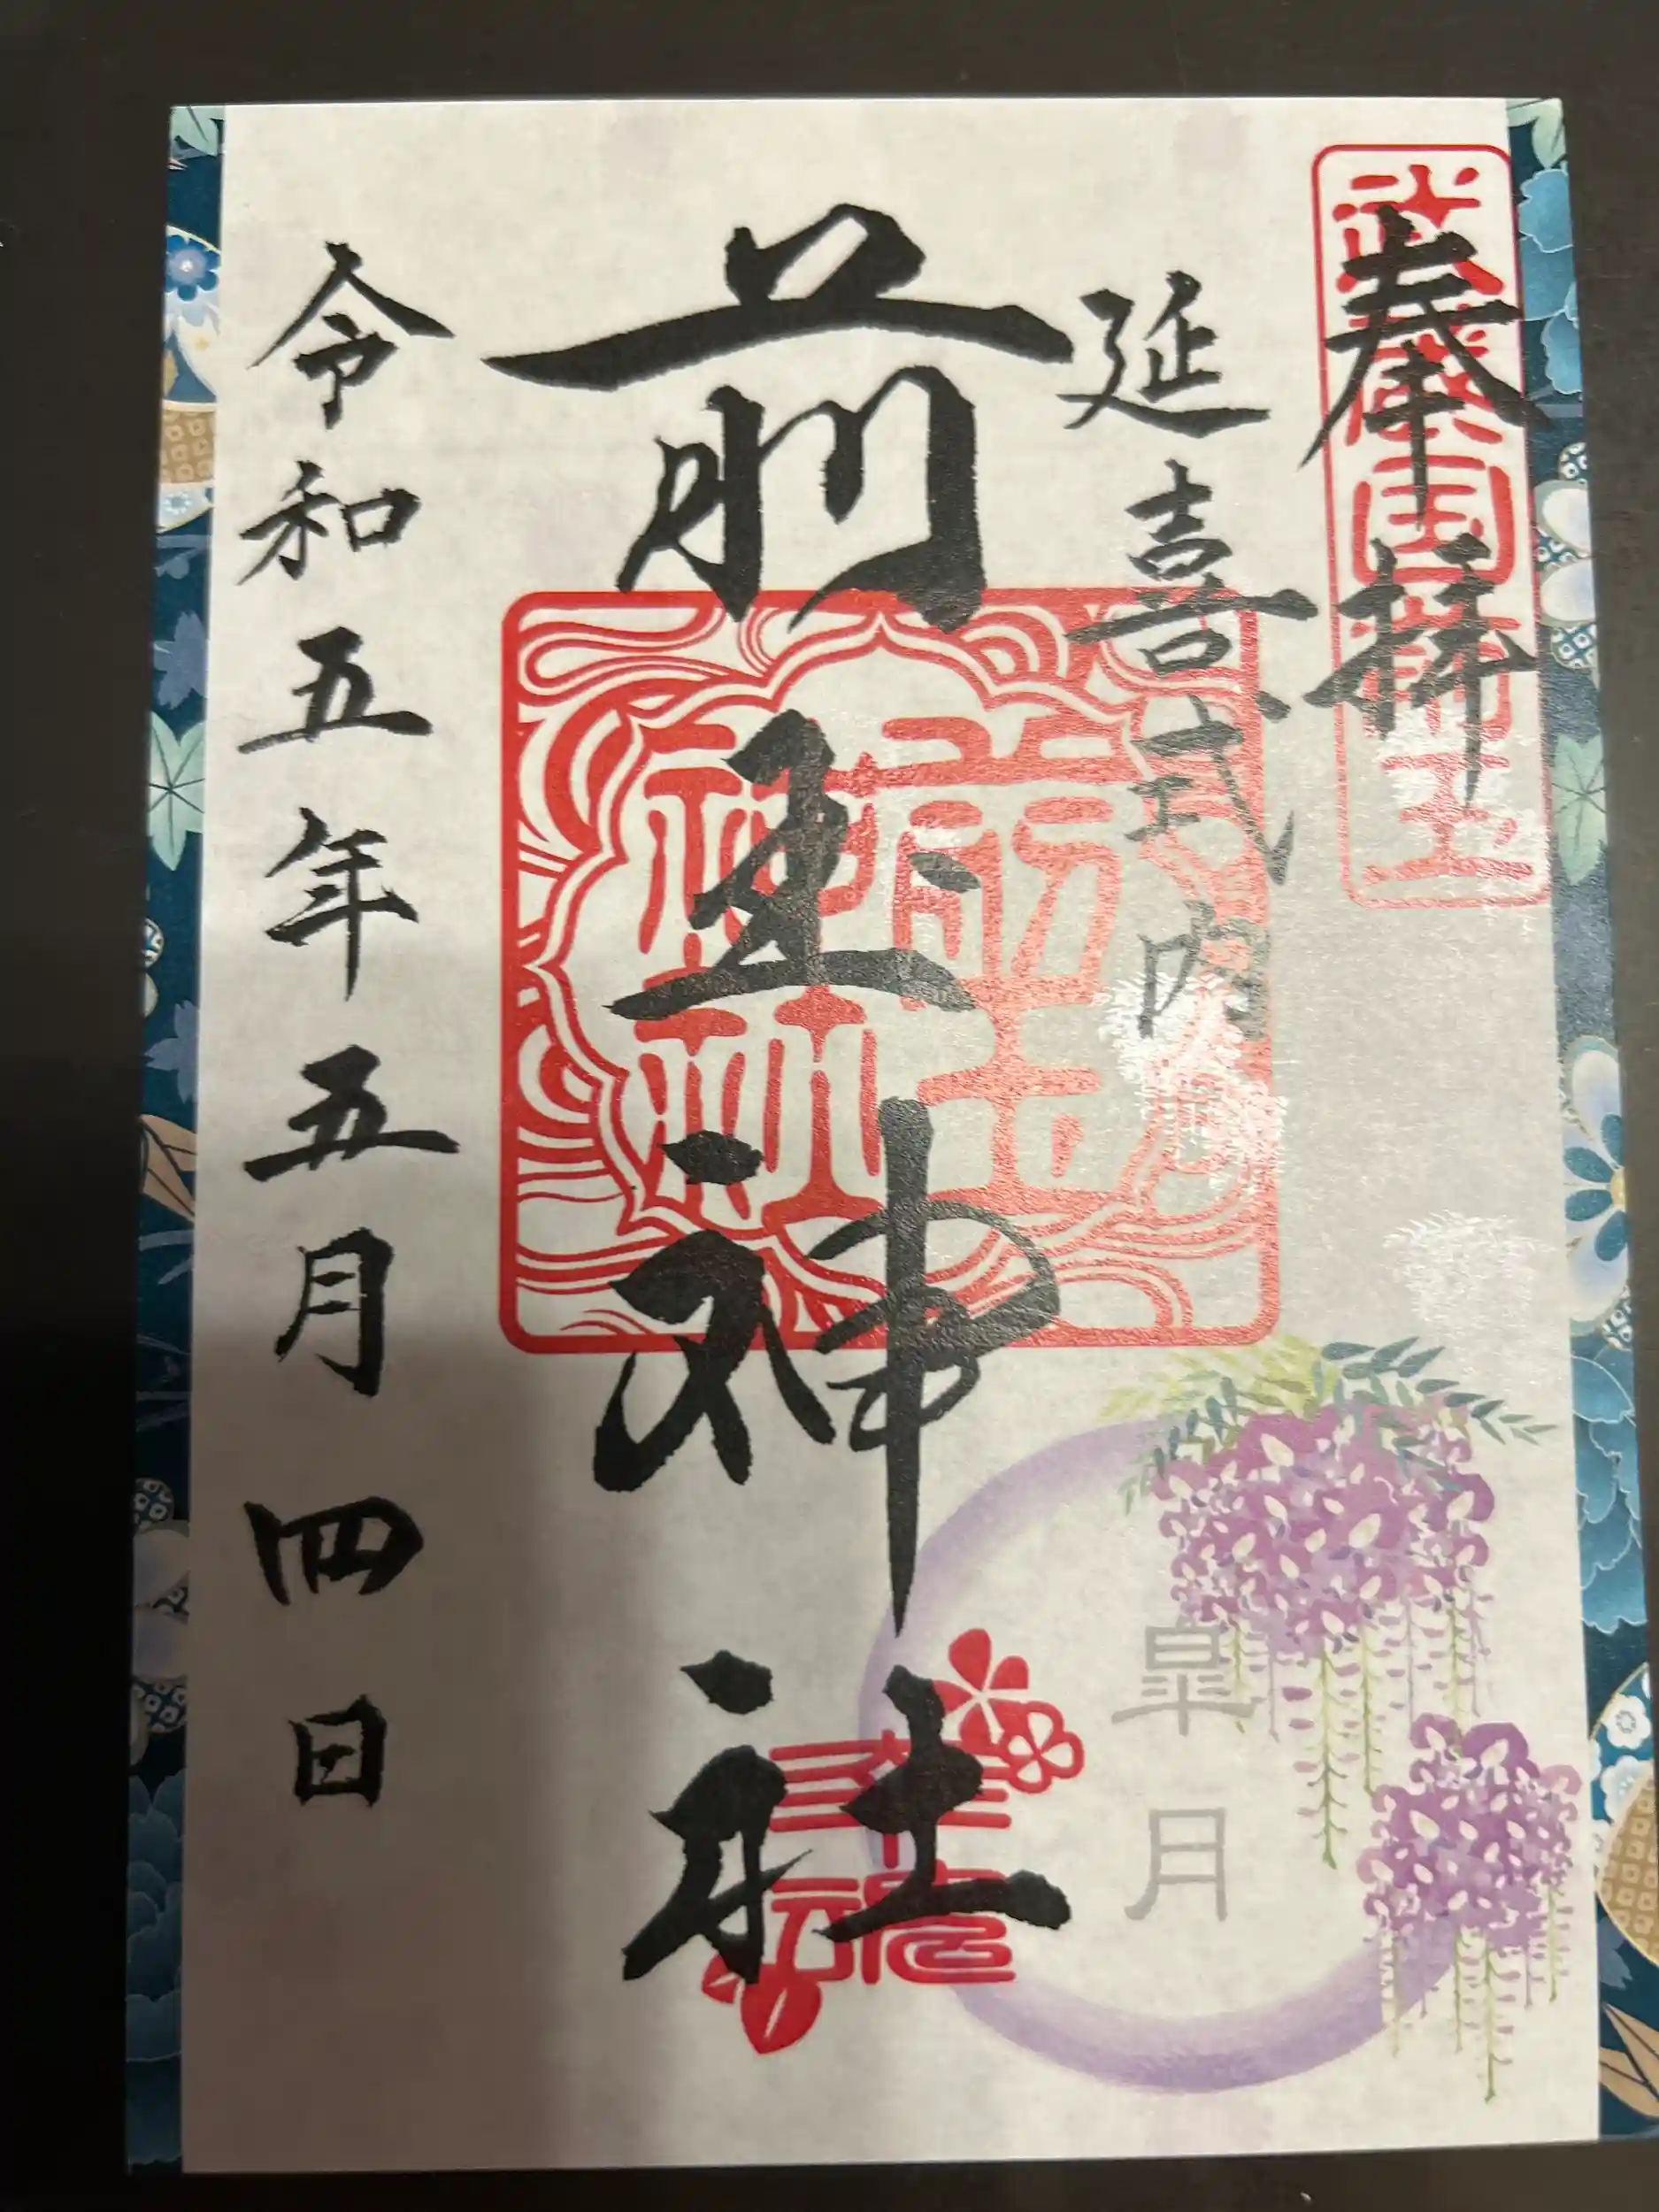 奉拝
延喜式内
前玉神社
前玉
神社
皐月
令和五年五月四日